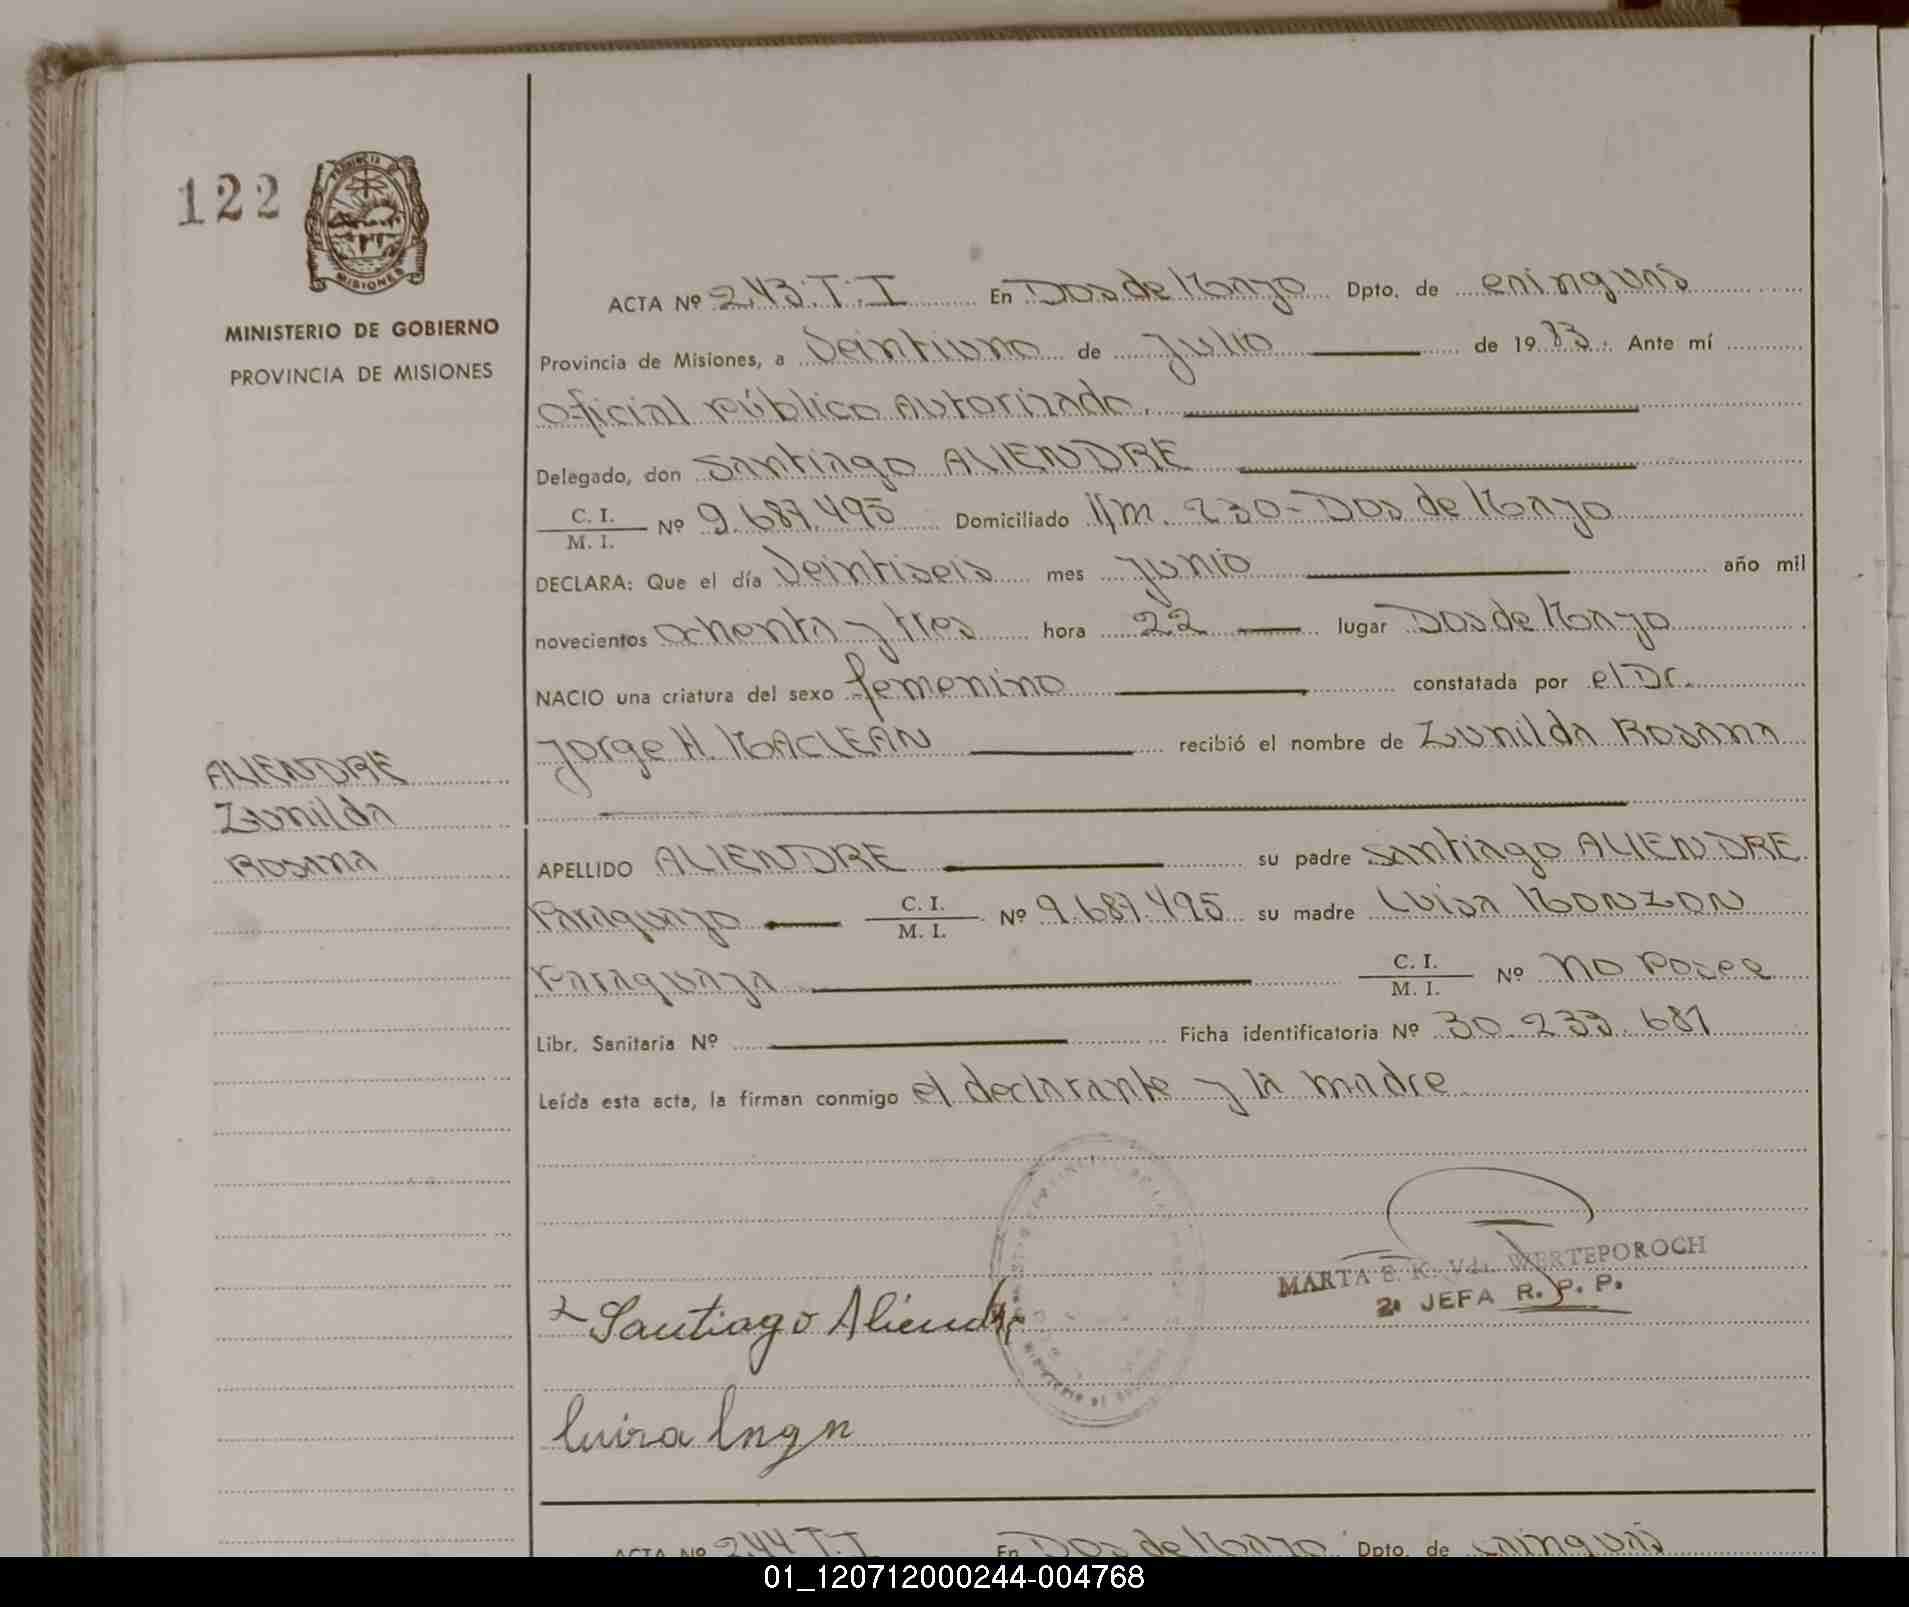 122
PROVINCIA DE
MISIONES
MINISTERIO DE GOBIERNO
PROVINCIA DE MISIONES
ACTA Nº 243.T.I En Dos de Mayo Dpto. de cainguas
Provincia de Misiones, a veintiuno de julio de 1983. Ante mí
Oficial Público Autorizado.
Delegado, don Santiago ALIENDRE
C. I.
M. I. Nº 9.687.495 Domiciliado Km. 230-Dos de Mayo
DECLARA: Que el día veintiseis mes junio año mil
novecientos ochenta y tres hora 22 lugar Dos de Mayo
NACIO una criatura del sexo femenino constatada por el Dr.
Jorge H. MACLEAN recibió el nombre de Zunilda Rosana
ALIENDRE
Zunilda
Rosana
APELLIDO ALIENDRE su padre Santiago ALIENDRE
Paraguayo C. I.
M. I. Nº 9.687.495 su madre Luisa MONZON
Paraguaya C. I.
M. I. Nº No Posee
Libr. Sanitaria Nº Ficha identificatoria Nº 30.233.687
Leída esta acta, la firman conmigo el declarante y la madre
MARTA E. K. Vda. WERTEPOROCH
2ª JEFA R. P. P.
Santiago Aliendre
Luisa
ACTA Nº 244 T.I En Dos de Mayo Dpto. de cainguas
01_120712000244-004768